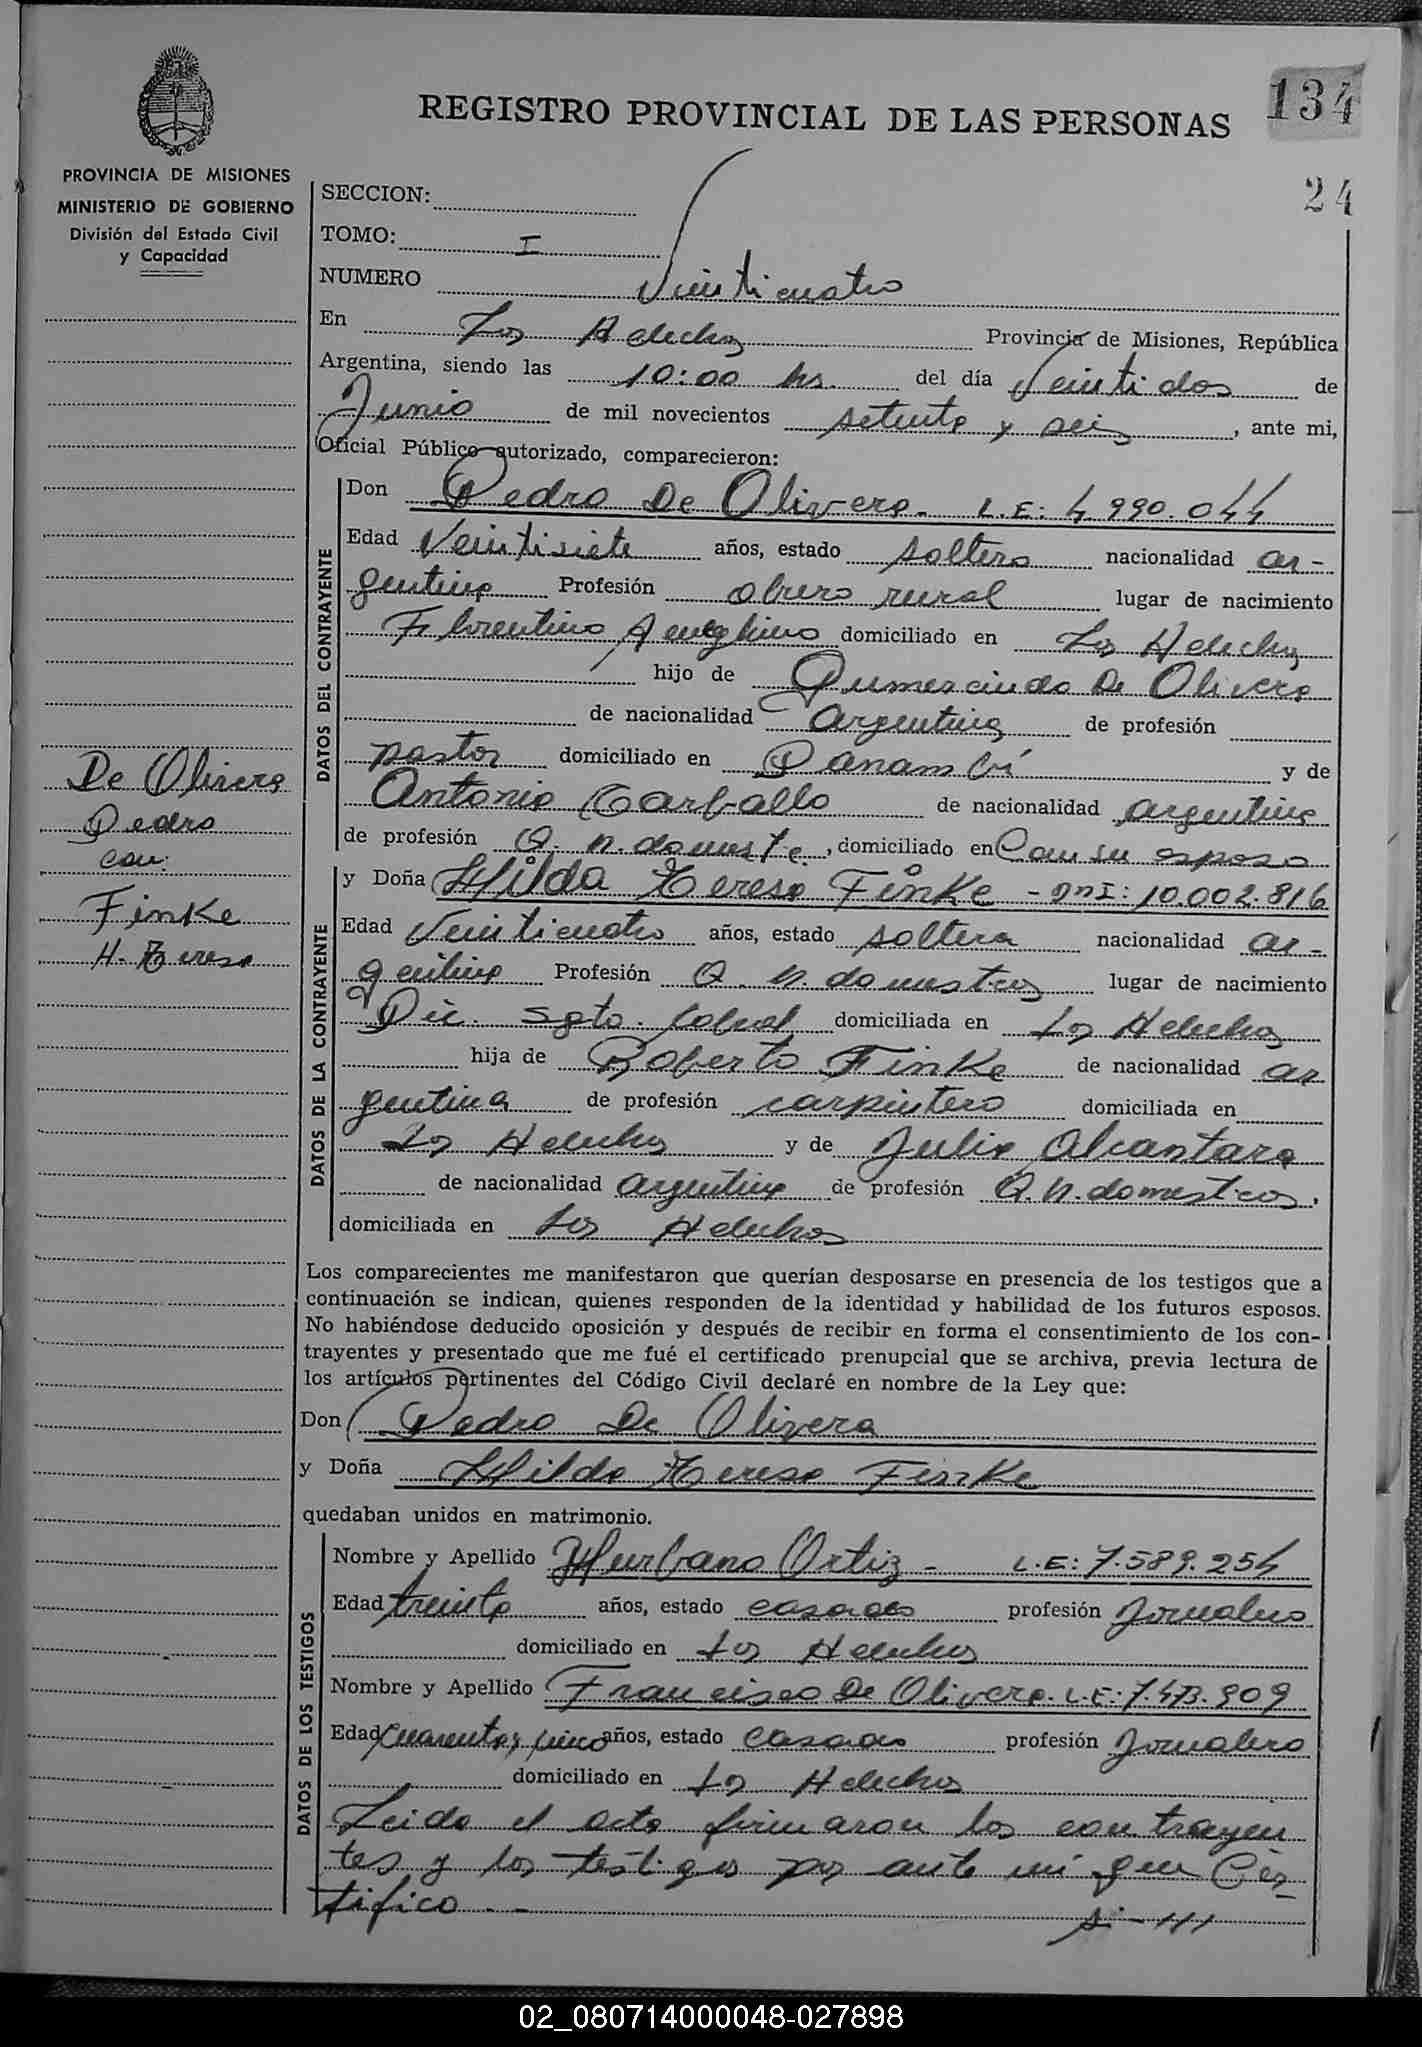 134
REGISTRO PROVINCIAL DE LAS PERSONAS
24
PROVINCIA DE MISIONES
MINISTERIO DE GOBIERNO
División del Estado Civil
y Capacidad
SECCION:
TOMO: I
NUMERO Veinticuatro
En Los Helechos Provincia de Misiones, República
Argentina, siendo las 10:00 hs. del día Veintidos de
Junio de mil novecientos setenta y seis, ante mi,
Oficial Público autorizado, comparecieron:
DATOS DEL CONTRAYENTE
Don Pedro De Olivera. L.E: 4.990.044
Edad Veintisiete años, estado soltero nacionalidad ar-
gentina Profesión obrero rural lugar de nacimiento
Florentino Ameghino domiciliado en Los Helechos
hijo de Gumercindo De Olivera
de nacionalidad argentina de profesión
pastor domiciliado en Panambí y de
Antonia Carballo de nacionalidad argentina
de profesión Q. n. domestc., domiciliado en Con su esposo
De Olivera
Pedro
con:
Finke
H. Teresa
DATOS DE LA CONTRAYENTE
y Doña Hilda Teresa Finke - DNI: 10.002.816
Edad Veinticuatro años, estado soltera nacionalidad ar-
gentina Profesión Q. n. domesticos lugar de nacimiento
Pic. Sgto. Cabral domiciliada en Los Helechos
hija de Roberto Finke de nacionalidad ar
gentina de profesión carpintero domiciliada en
Los Helechos y de Julia Alcantara
de nacionalidad argentina de profesión Q. n. domesticos.
domiciliada en Los Helechos
Los comparecientes me manifestaron que querían desposarse en presencia de los testigos que a
continuación se indican, quienes responden de la identidad y habilidad de los futuros esposos.
No habiéndose deducido oposición y después de recibir en forma el consentimiento de los con-
trayentes y presentado que me fué el certificado prenupcial que se archiva, previa lectura de
los artículos pertinentes del Código Civil declaré en nombre de la Ley que:
Don Pedro De Olivera
y Doña Hilda Teresa Finke
quedaban unidos en matrimonio.
DATOS DE LOS TESTIGOS
Nombre y Apellido Hurbano Ortiz - L.E: 7.589.254
Edad treinta años, estado casado profesión Jornalero
domiciliado en Los Helechos
Nombre y Apellido Francisco De Olivera. L.E: 7.473.909
Edad cuarenta y cinco años, estado casado profesión Jornalero
domiciliado en Los Helechos
Leido el acta firmaron los contrayen
tes y los testigos por ante mi que Cer-
tifico. -
02_080714000048-027898